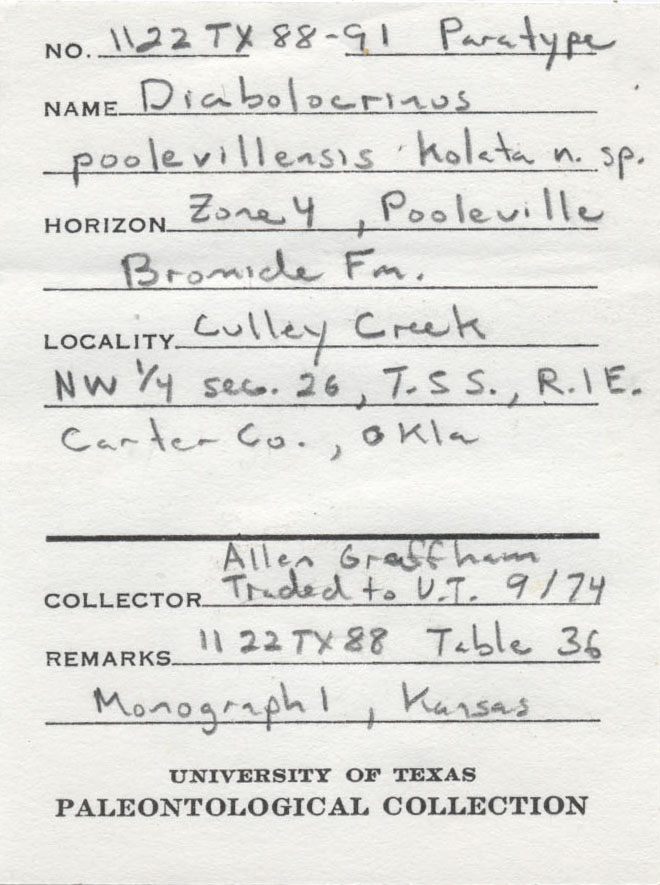 NO. 1122 TX 88-91 Paratype
NAME Diabolocrinus
poolevillensis Kolata n. sp.
HORIZON Zone 4, Pooleville
Bromide Fm.
LOCALITY Culley Creek
NW 1/4 sec. 26, T.5S., R.1E.
Carter Co., Okla
Allen Graffham
COLLECTOR Traded to U.T. 9/74
REMARKS 1122TX88 Table 36
Monograph 1, Kansas
UNIVERSITY OF TEXAS
PALEONTOLOGICAL COLLECTION